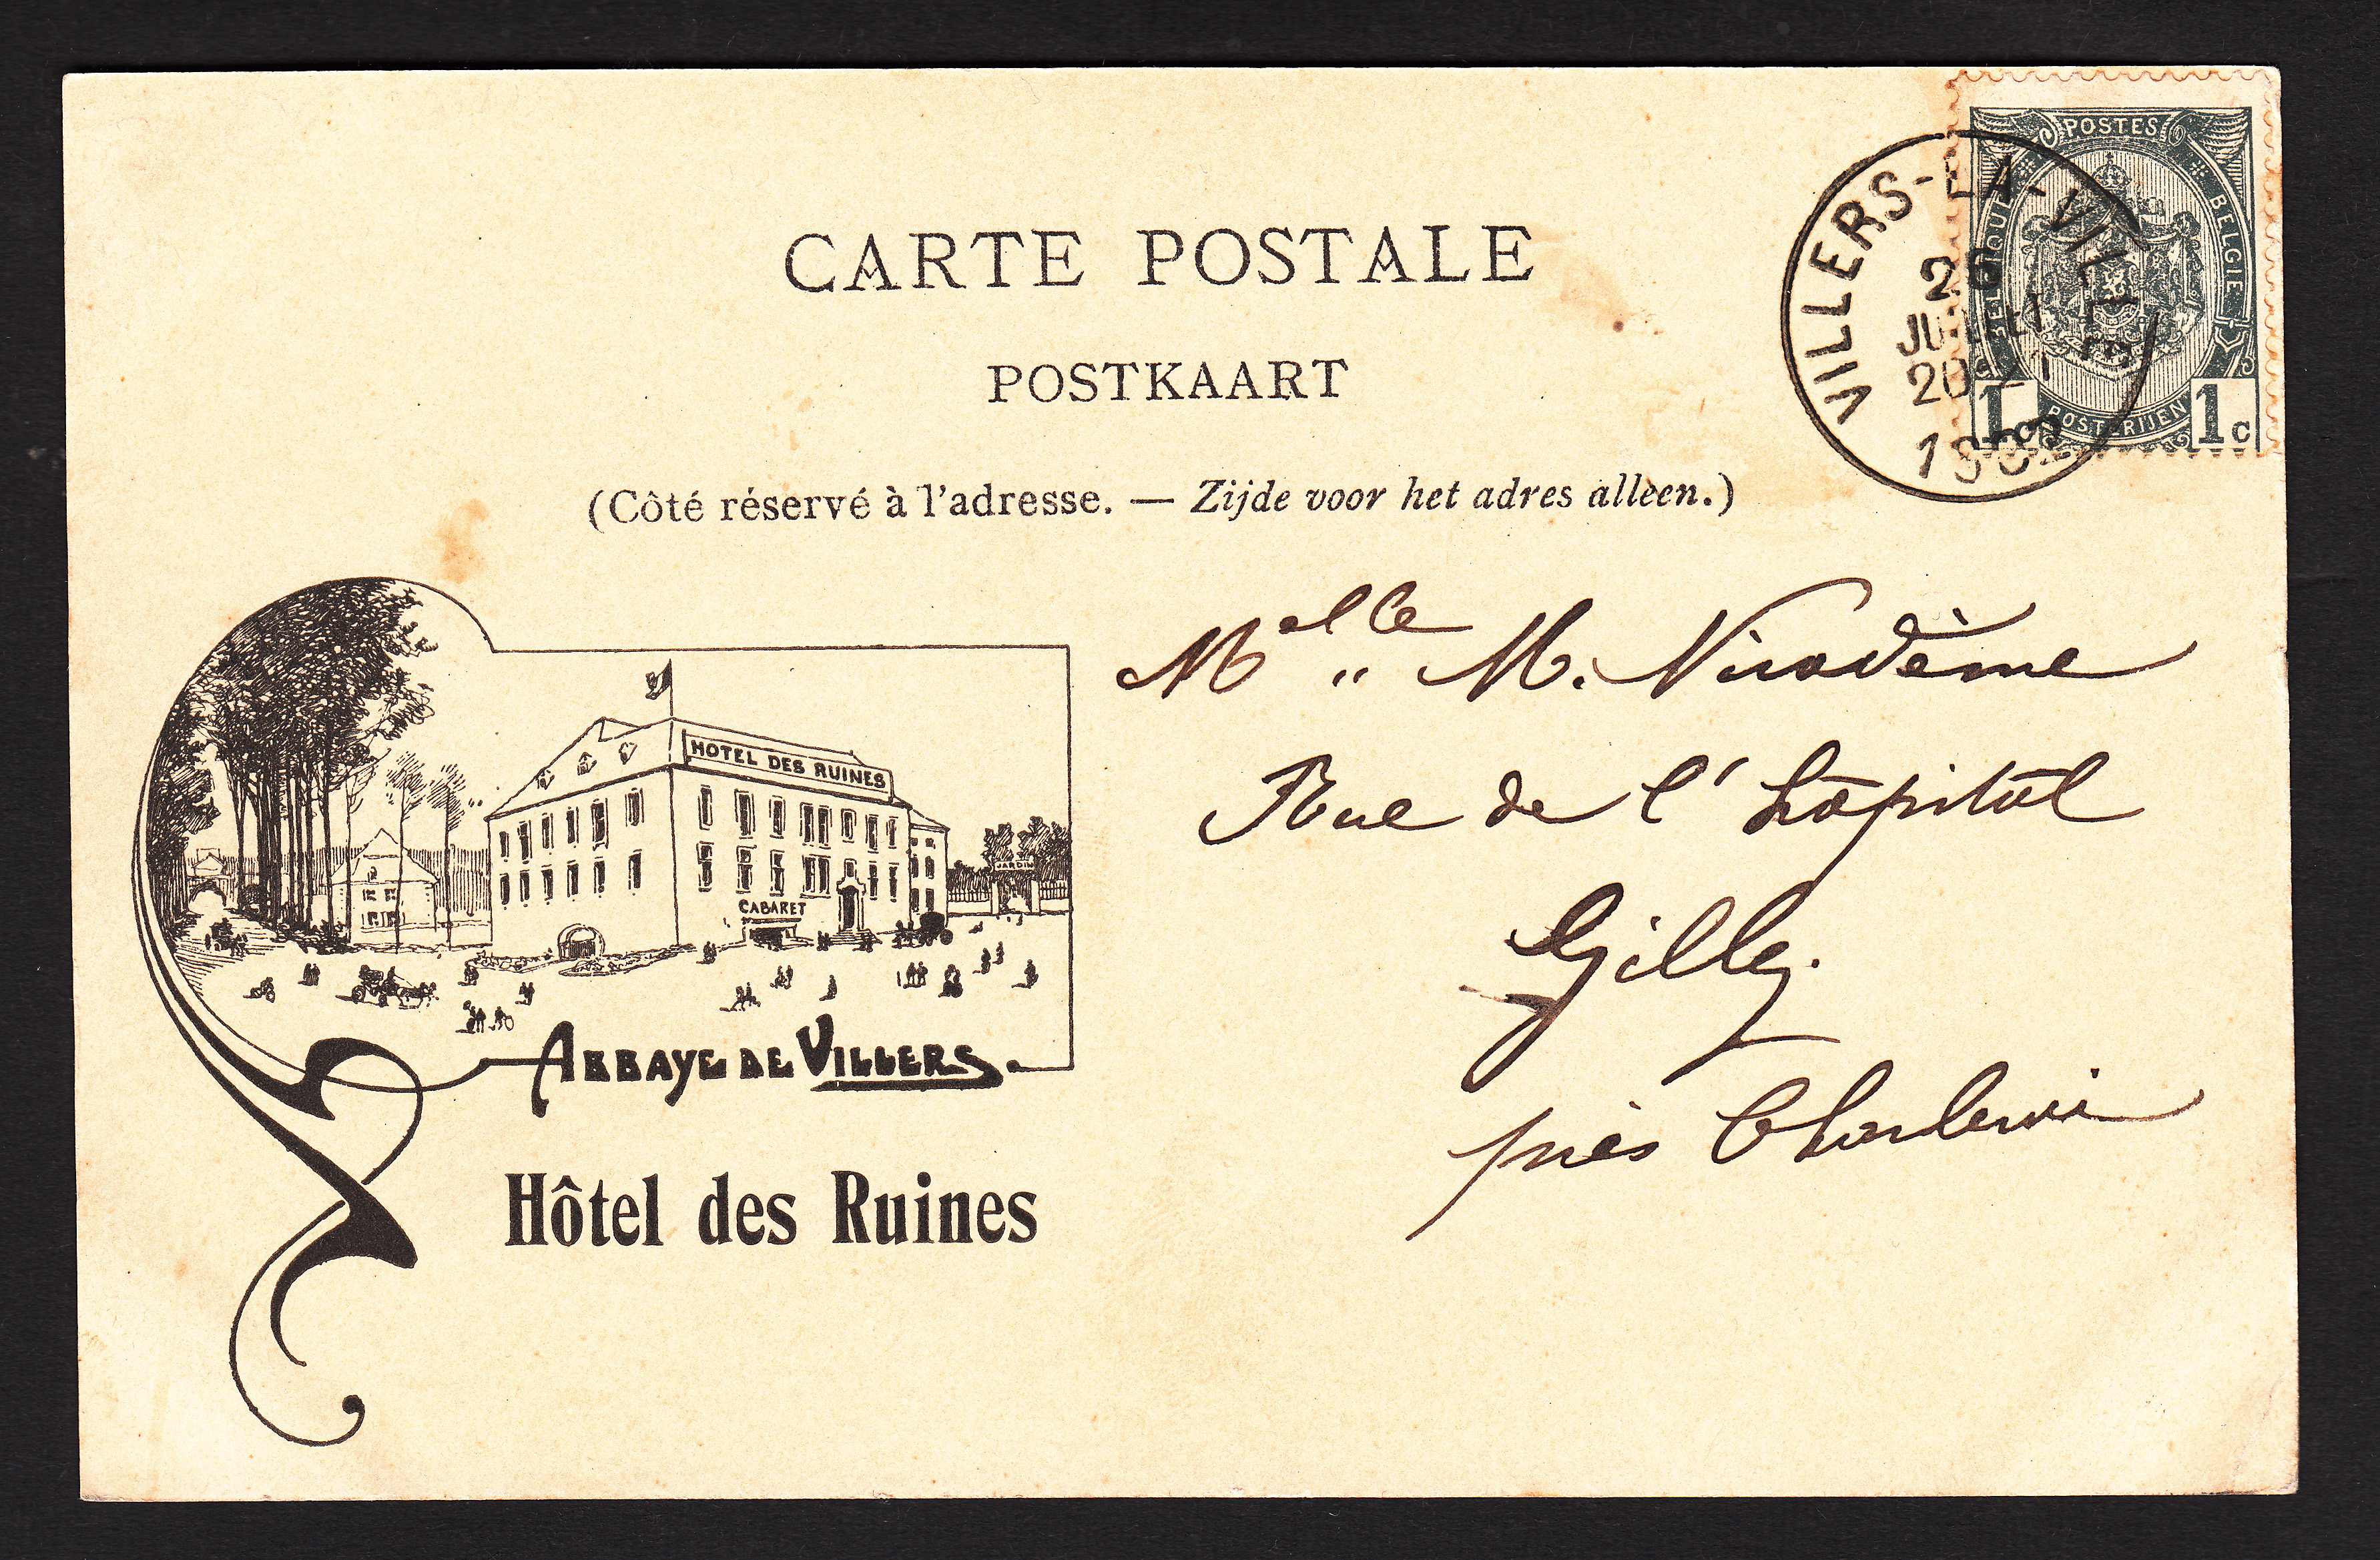 CARTE POSTALE
POSTKAART
(Côté réservé à l'adresse. — Zijde voor het adres alleen.)
POSTES
BELGIQUE
BELGIE
POSTERIJEN
1c
1c
VILLERS-LA-VILLE
JUIL
20-21
HOTEL DES RUINES
CABARET
JARDIN
ABBAYE DE VILLERS.
Hôtel des Ruines
Melle M. Nicodème
Rue de l'hôpital
Gilly.
près Charleroi